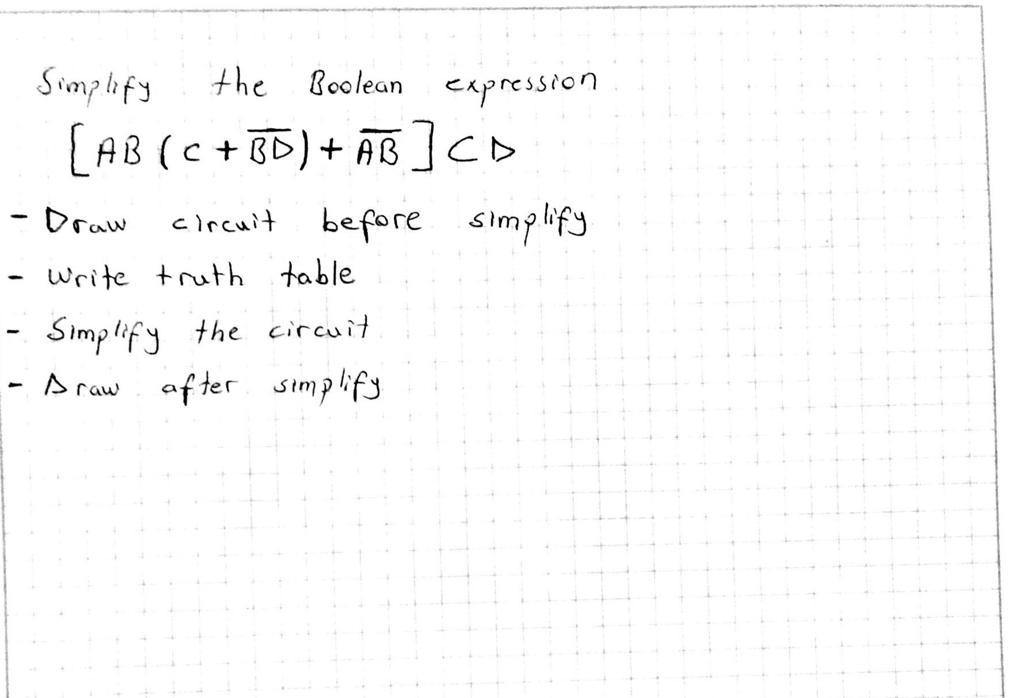 Simplify the Boolean expression
[AB (C + B̅D̅) + A̅B̅] CD
- Draw circuit before simplify
- Write truth table
- Simplify the circuit
- Draw after simplify